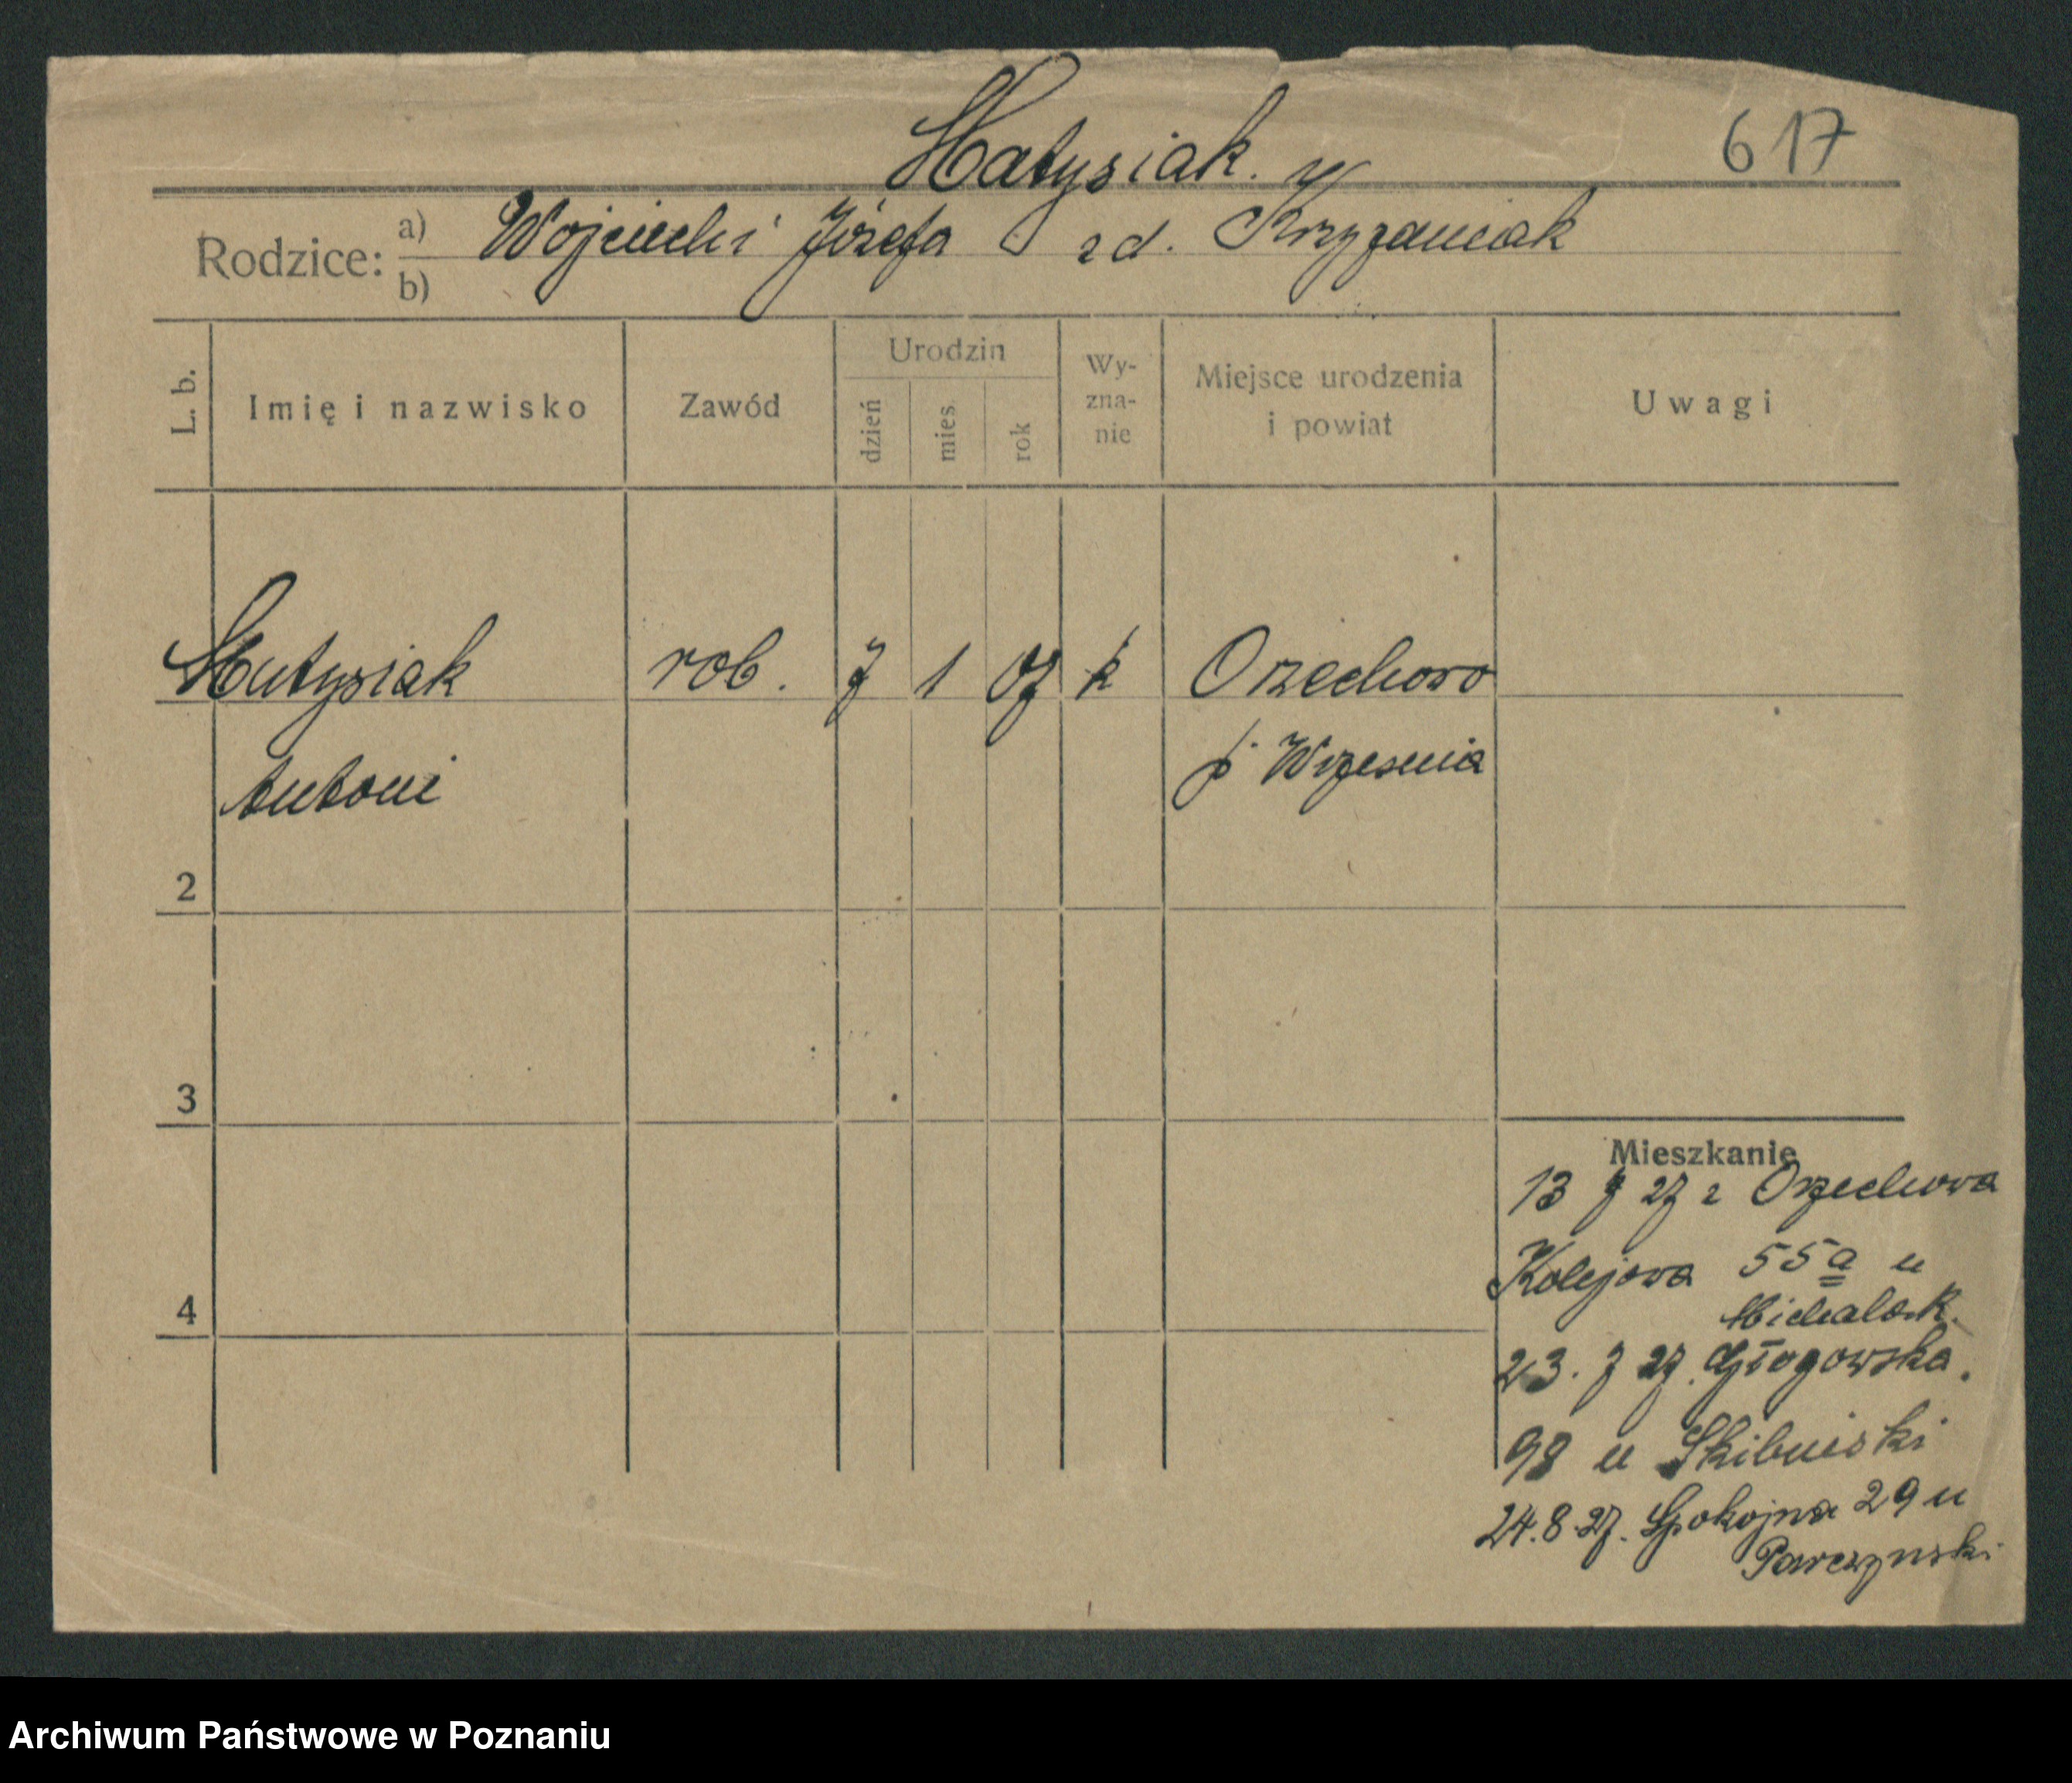 617
Matysiak.
Rodzice: a) Wojciech i Józefa zd. Krzyżaniak
b)
L. b. Imię i nazwisko Zawód Urodzin dzień mies. rok Wy-zna-nie Miejsce urodzenia i powiat Uwagi
Matysiak rob. 7 1 07 k Orzechowo
Antoni p. Wrzesnia
2
3
4
Mieszkanie
13 7 27 z Orzechowa
Kolejowa 55a u
Michalak.
23. 7 27. Głogowska.
98 u Skibniski
24.8.27. Spokojna 29 u
Archiwum Państwowe w Poznaniu